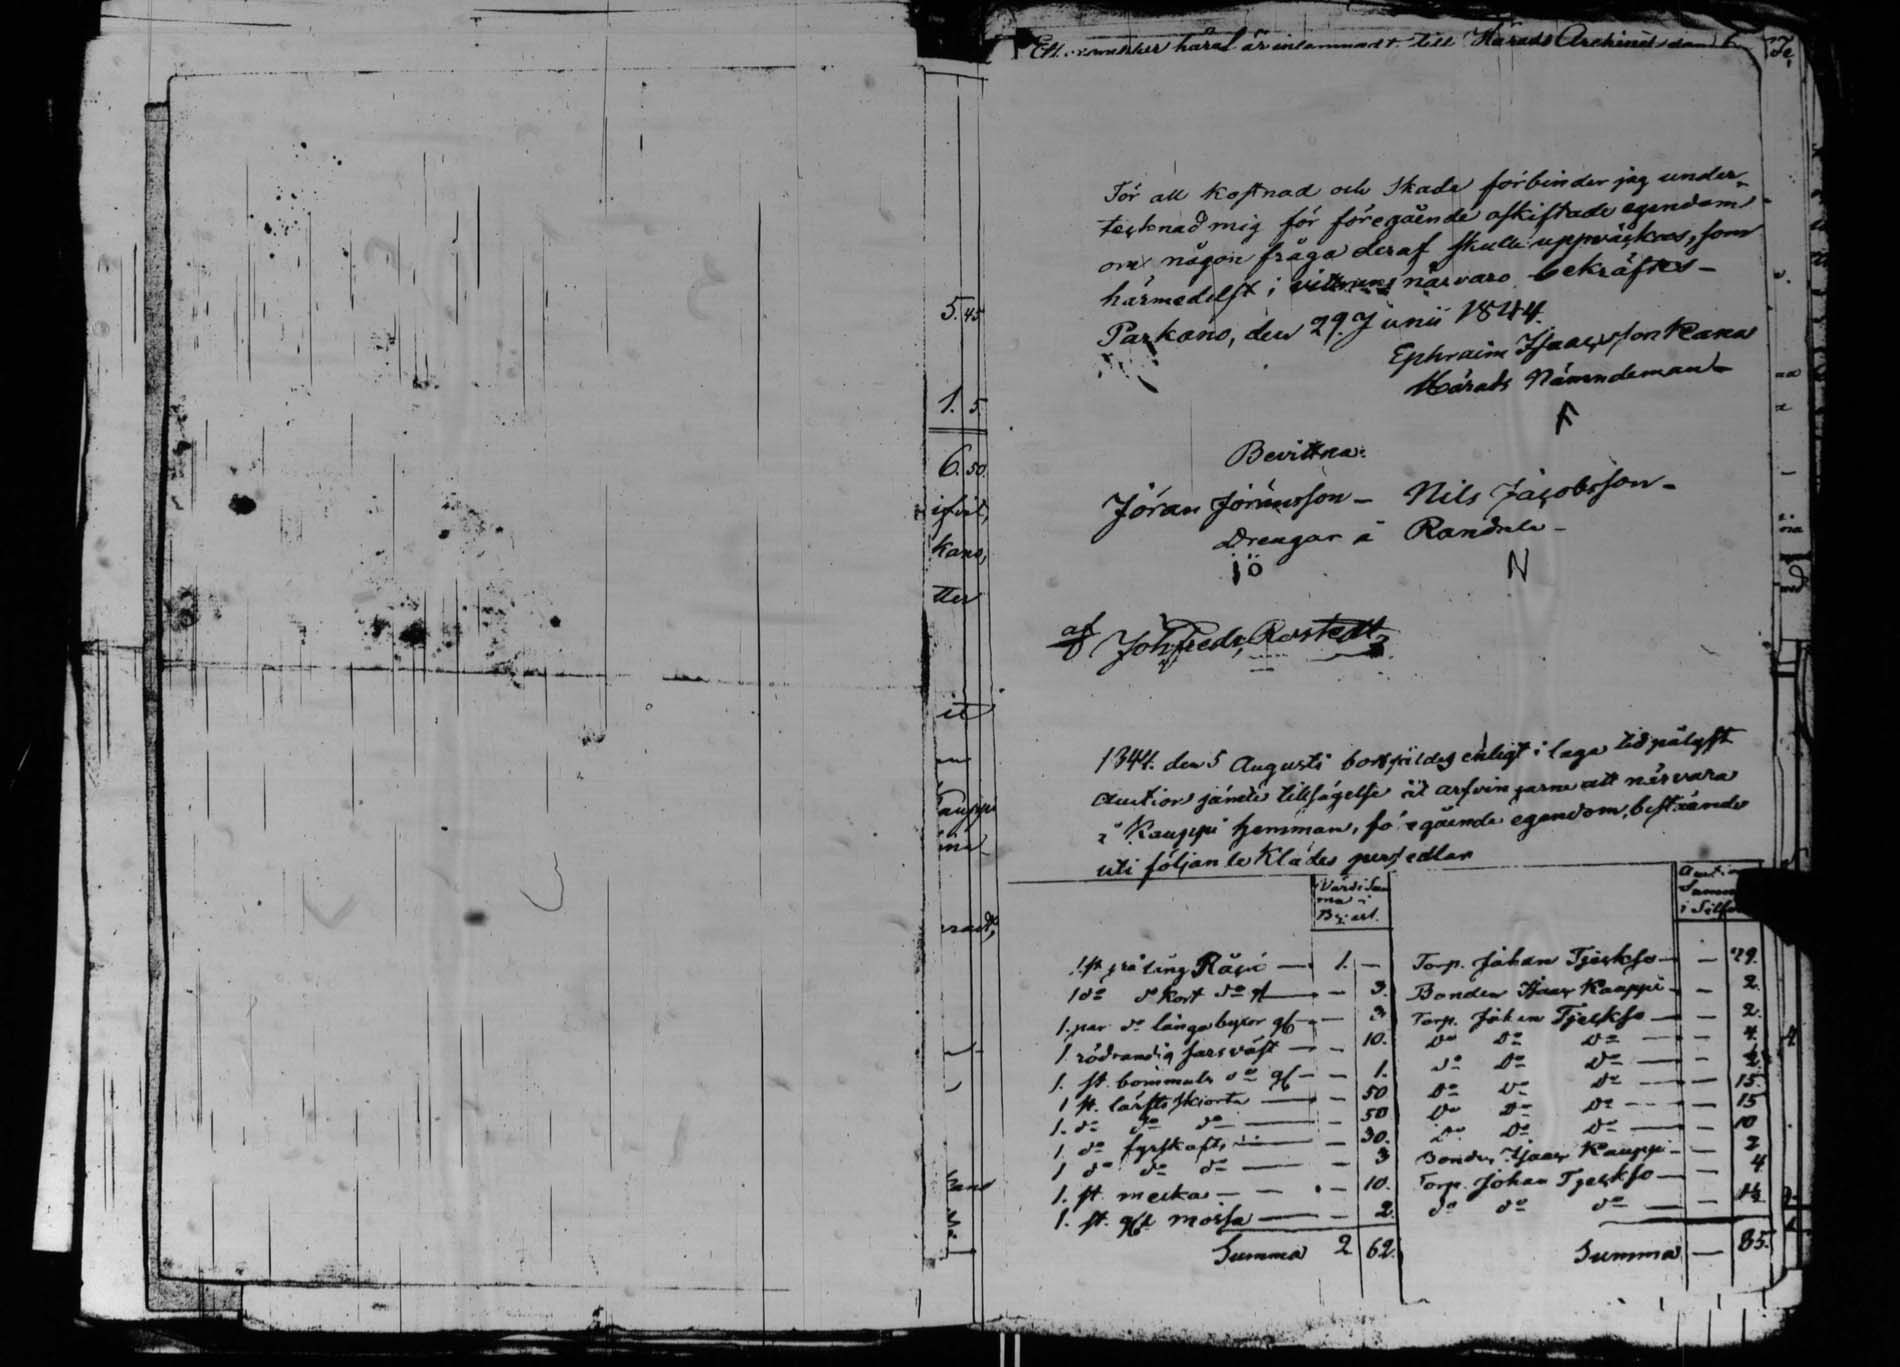 Ett exemplar häraf är inlemnadt till Härads Archivet
För all kostnad och skada förbinder jag under-
tecknad mig för föregående afskiftade egendom
om någon fråga deraf skulle uppväckas, som
härmedelst i vittnens närvaro bekräftes –
Parkano, den 29. Junii 1844.
Ephraim Isaacsson Rana
Härads Nämndeman –
Bevittna:
Jöran Jöransson – Nils Jacobsson –
Drengar å Randala –
iö N
af Joh. Fredr.
5. 45
1. 5
6. 50
kano,
tter
it
auppi
1844. den 5 Augusti bortsåldes enligt i laga tid pålyst
Auction jämte tillsägelse åt arfvingarne att närvara
å Kauppi hemman, föregående egendom, bestående
uti följande Klädes persedlar
Värdi Sum
ma i
Bco ass.
Auctions
Summa
i Silfver
1. st. grå lång — 1. — Torp. Johan Tjäckso — — 29.
1 do do kort do gl — — 3. Bonden Isaac Kauppi — — 2.
1. par do långa byxor gl — — 3 Torp. Johan Tjäckso — — 2.
1. rödrandig sarsväst — — 10. Do Do Do — — 4.
1. st. bommulls do gl — — 1. Do Do Do — —
1 st. lärfts skiorta — — 50 Do Do Do — — 15.
1. do do do — — 50 Do Do Do — — 15
1. do fyrskafts — — 30. Do Do Do — — 10
1 do do do — — 3 Bonden Isaac Kauppi — — 2
1. st. mecko — — 10. Torp. Johan Tjäckso — — 4
1. st. gl mössa — — 2. do do do — — 1½
Summa 2 62. Summa — 85.